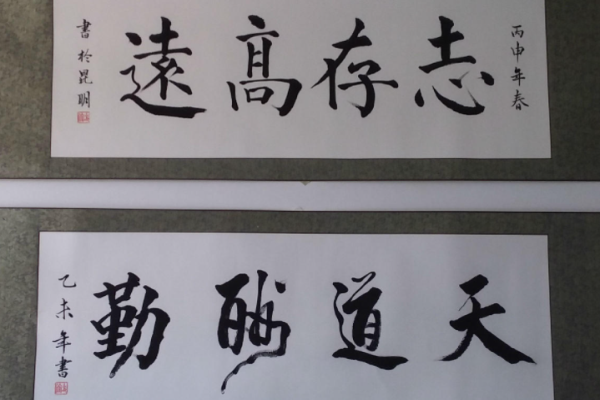 丙申年春
志存高遠
書於昆明
天道酬勤
乙未年書